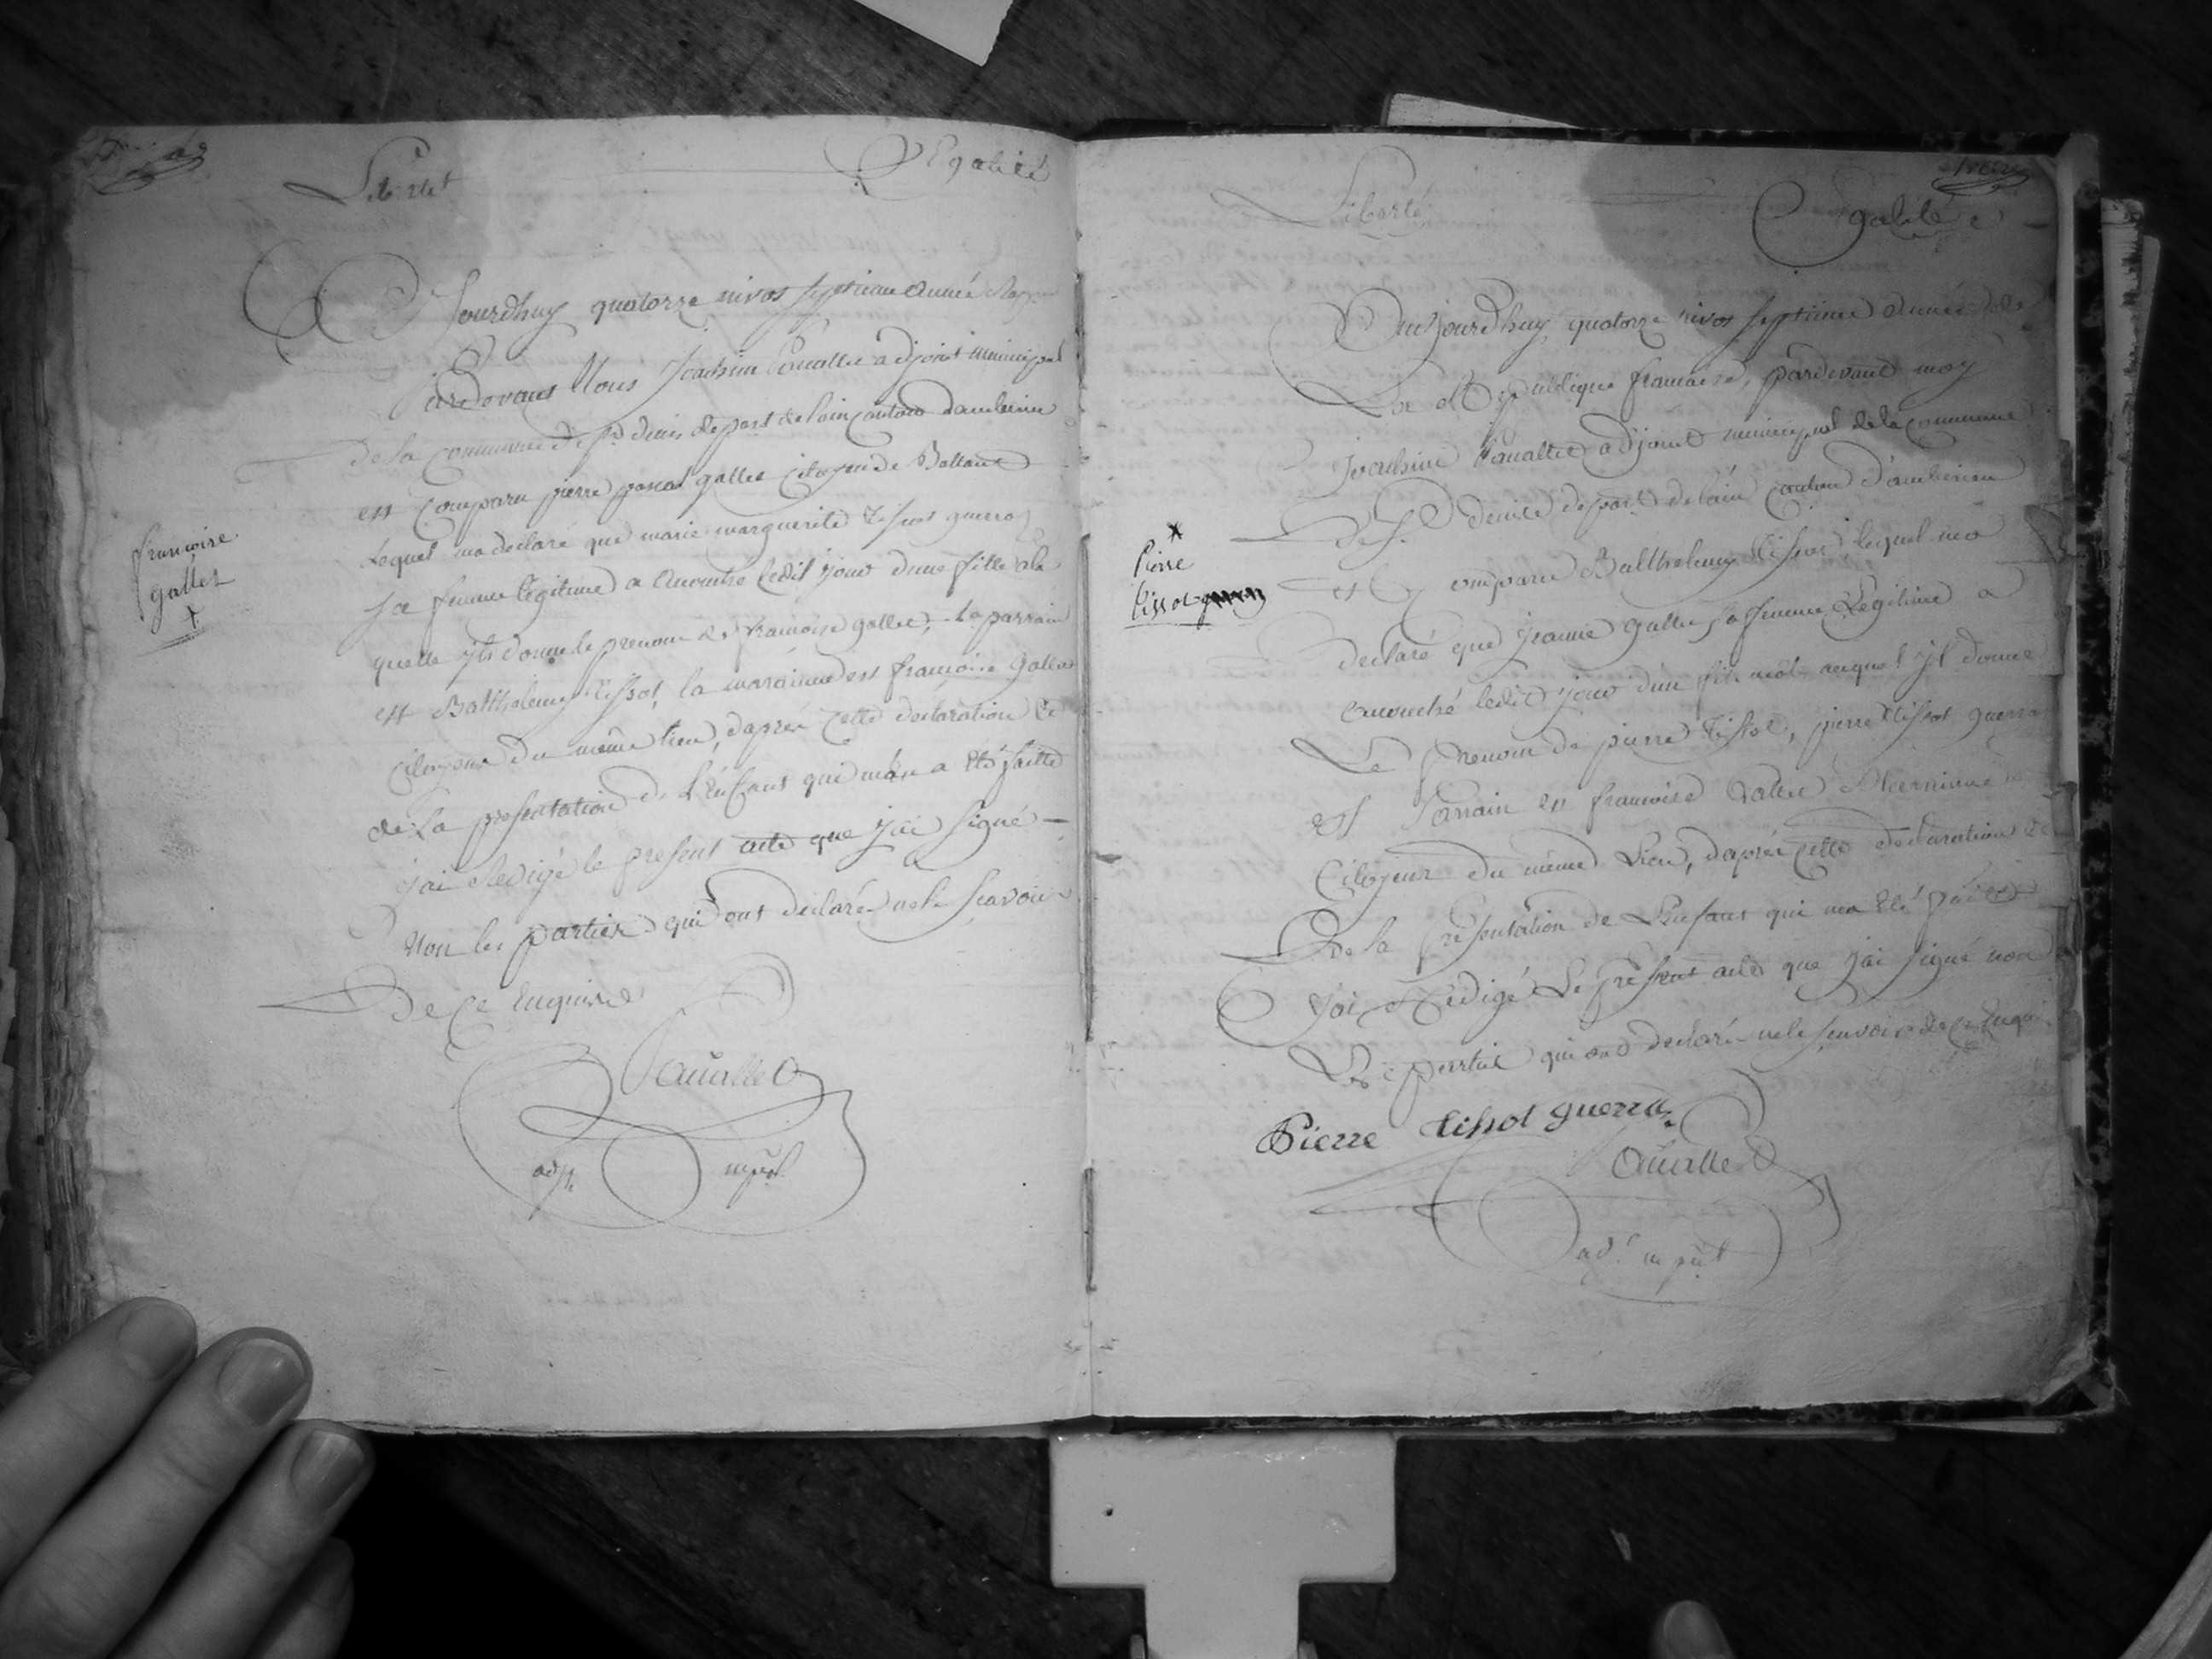 Libertet Egalité
Jourdhuy quatorze nivos septieme année
Pardevant Nous Joachim Cauallet adjoint municipal
de la commune de St denis depart de lain canton dambérieu
est Comparu pierre pascal gallet Citoyen de
Lequel ma declaré que marie margueritte tissot guerraz
sa femme legitime a accouché ledit jour dune fille a la
quelle yls donne le prenom de francoise gallet, le parrain
est Balthelemy tissot, la maraine est francoise gallet
Citoyens du même lieu, daprés cette declaration et
de la presentation de l'Enfant qui m'en a été faitte
jai Redigé le present acte que jai signé
Non les parties qui ont declaré ne le scavoir
De Ce Enquire
Cauallet
adjt mpal
francoise
gallet
+
Liberté Egalité
Aujourdhuy quatorze nivos septieme année de
La Republique francaise, pardevant moy
Joachim Cauallet adjoint municipal de la commune
de St denis depart de lain canton d'amberieu
est Comparu Balthelemy tissot, lequel ma
declaré que jeanne gallet sa femme Legitime a
accouché ledit jour dun fils male auquel yl donne
Le Prenom de pierre tissot, pierre tissot guerraz
est Parrain et francoise Gallet Marraine
Citoyens du même Lieu, daprés cette declaration et
De la presentation de L'Enfant qui ma été faitte
Jai Redigé Le present acte que jai signé non
Les parties qui ont declaré ne le scavoir de ce Enqui
Pierre tissot guerraz
Cauallet
adjt mpal
Pierre
tissot